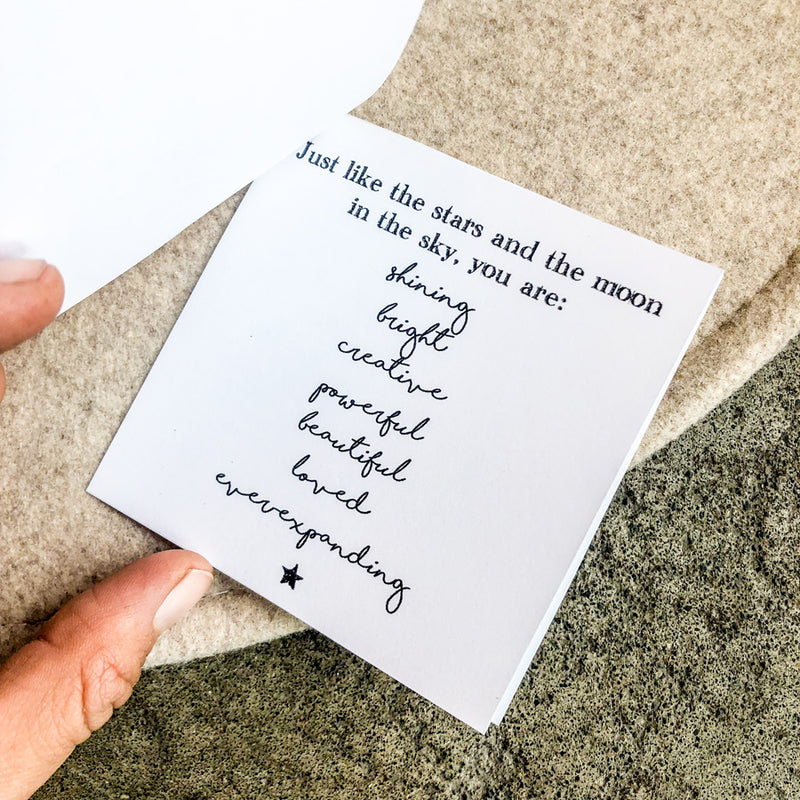 Just like the stars and the moon
in the sky, you are:
shining
bright
creative
powerful
beautiful
loved
everexpanding